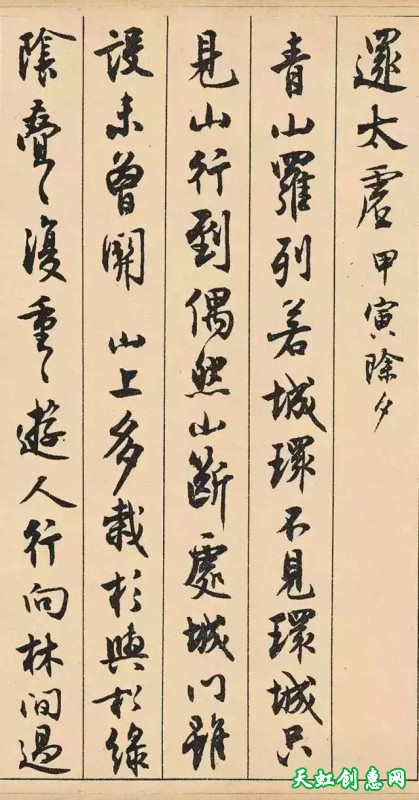 還太虛 甲寅除夕
青山羅列若城環不見環城只
見山行到偶然山斷處城門雖
設未曾關 山上多栽杉與松綠
陰疊〻復重〻遊人行向林間過
天虹创意网